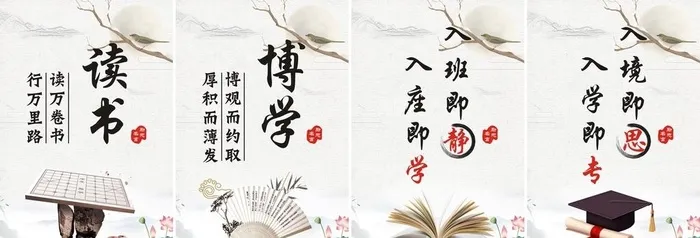 读书
读万卷书
行万里路
博学
博观而约取
厚积而薄发
入班即静
入座即学
入境即思
入学即专